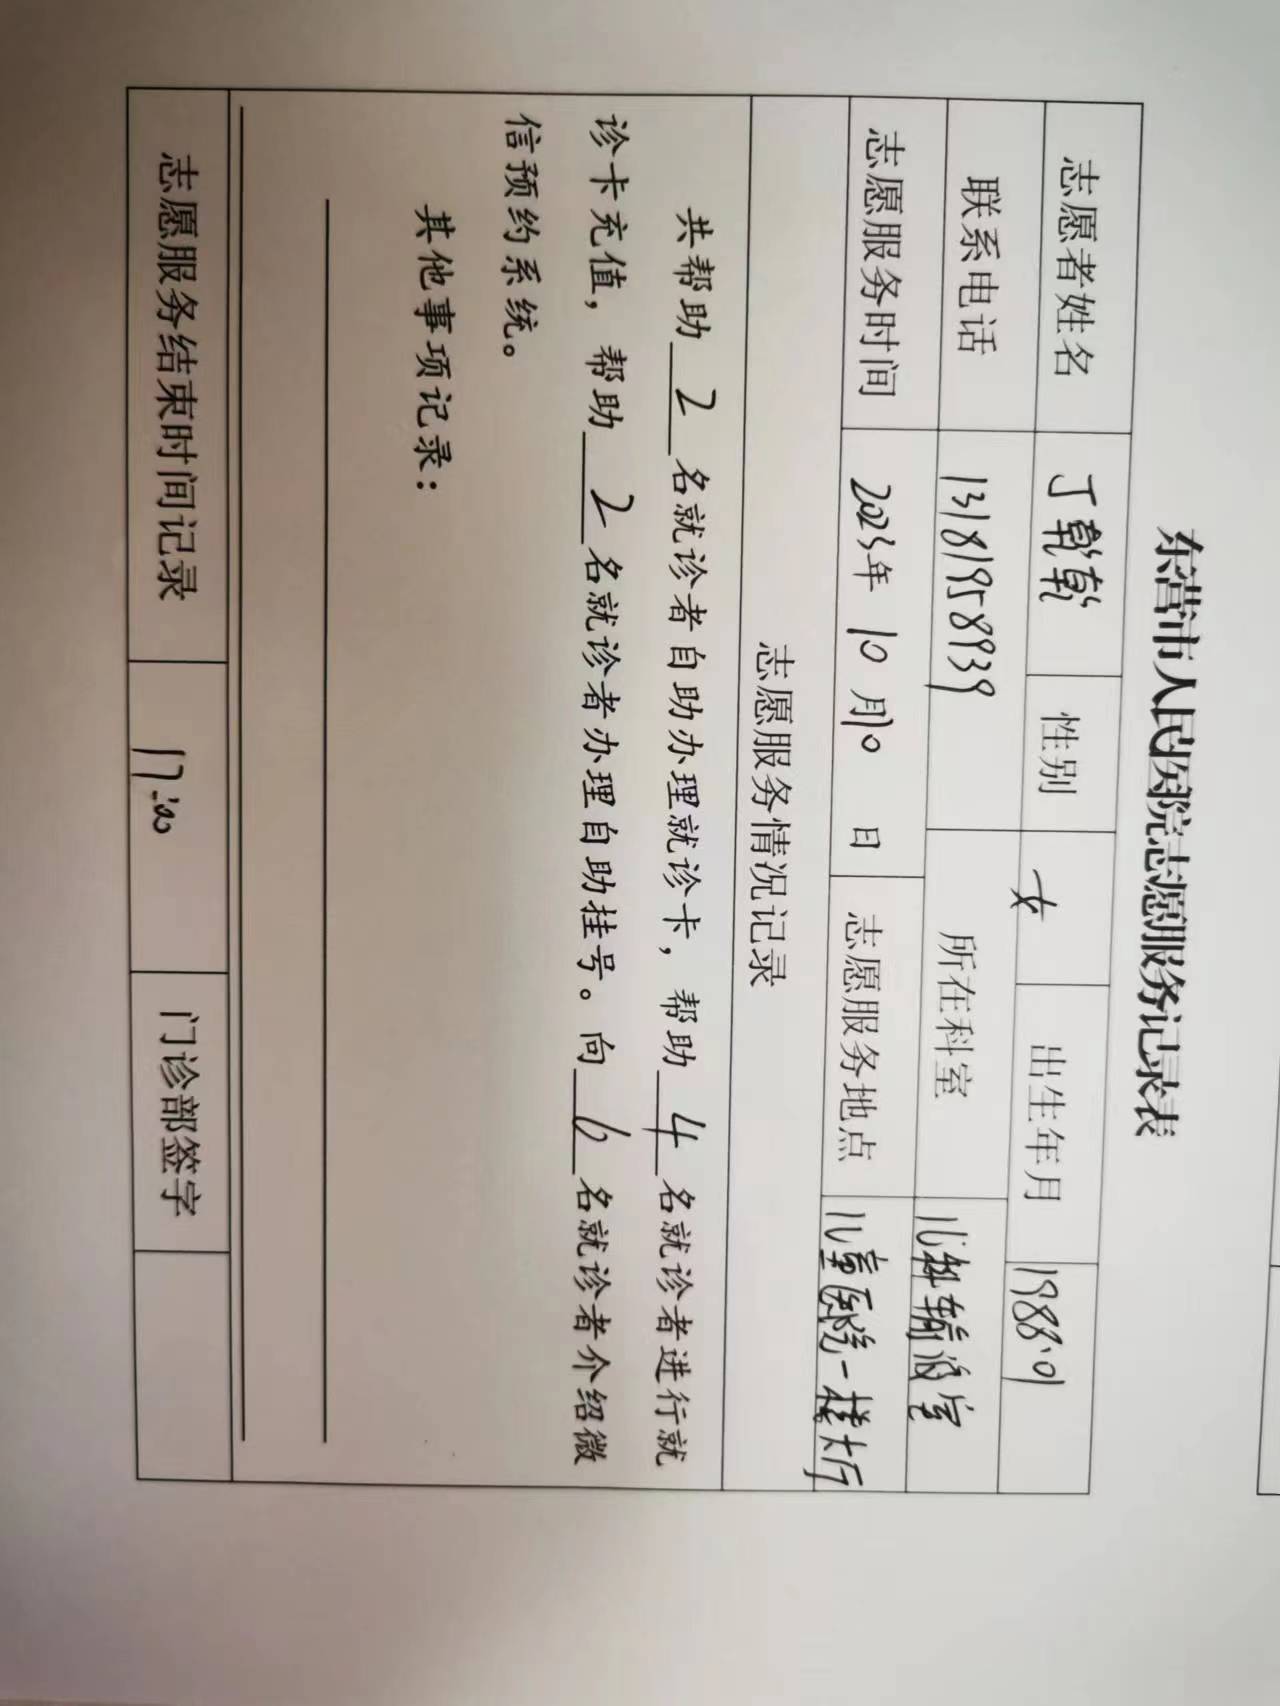 东营市人民医院志愿服务记录表
志愿者姓名 丁乾乾 性别 女 出生年月 1988.01
联系电话 13181958939 所在科室 儿科输液室
志愿服务时间 2023年 10 月10 日 志愿服务地点 儿童医院一楼大厅
志愿服务情况记录
共帮助 2 名就诊者自助办理就诊卡，帮助 4 名就诊者进行就
诊卡充值，帮助 2 名就诊者办理自助挂号。向 6 名就诊者介绍微
信预约系统。
其他事项记录：
志愿服务结束时间记录 17:00 门诊部签字